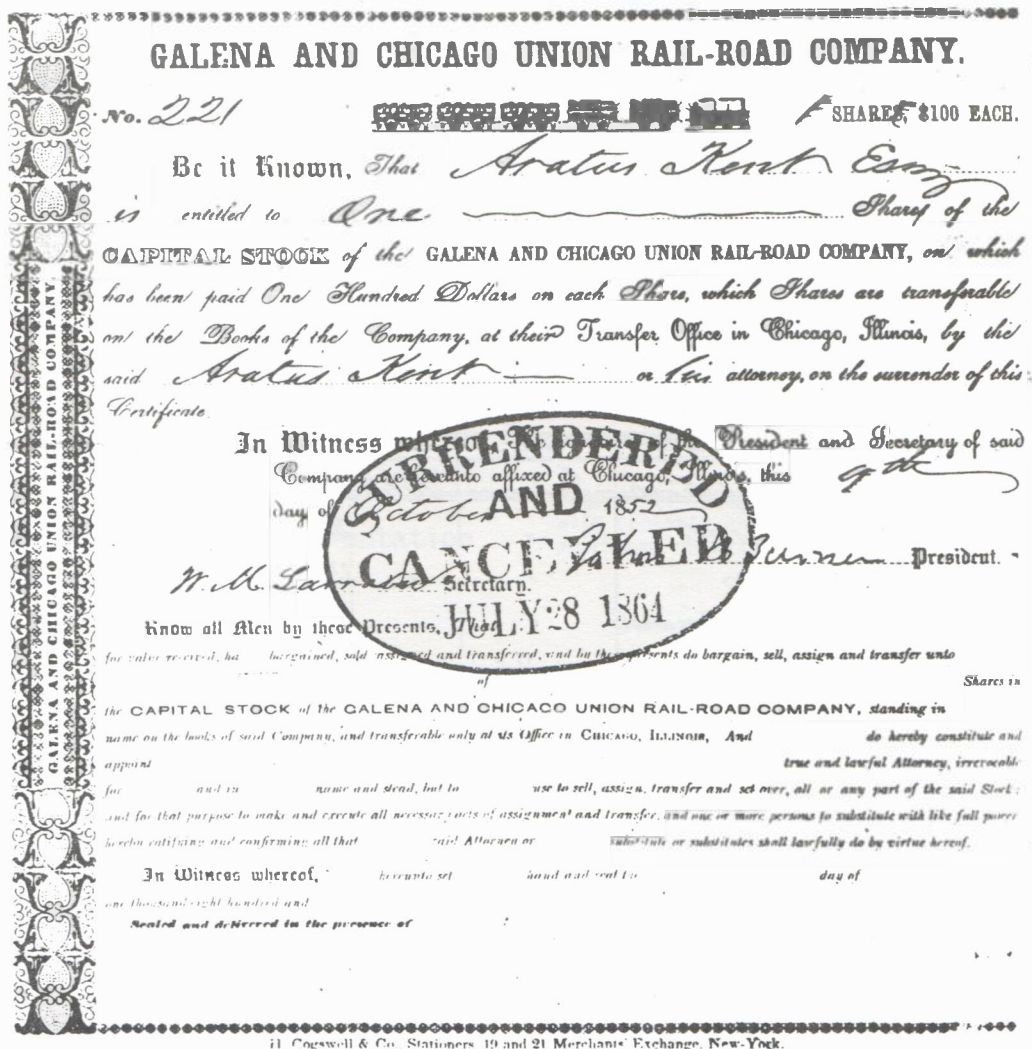 GALENA AND CHICAGO UNION RAIL-ROAD COMPANY.
No. 221 1 SHARES, $100 EACH.
Be it Known, That Aratus Kent Esq
is entitled to One Shares of the
CAPITAL STOCK of the GALENA AND CHICAGO UNION RAIL-ROAD COMPANY, on which
has been paid One Hundred Dollars on each Share, which Shares are transferable
on the Books of the Company, at their Transfer Office in Chicago, Illinois, by the
said Aratus Kent or his attorney, on the surrender of this
Certificate.
In Witness whereof, The of the President and Secretary of said
Company are hereunto affixed at Chicago, Illinois, this 9th
day of October 1852
John B Turner President.
W. M. Secretary.
SURRENDERED
AND
CANCELLED
JULY 28 1864
Know all Men by these Presents, That
for value received, ha bargained, sold assigned and transferred, and by these presents do bargain, sell, assign and transfer unto
of Shares in
the CAPITAL STOCK of the GALENA AND CHICAGO UNION RAIL-ROAD COMPANY, standing in
name on the books of said Company, and transferable only at its Office in CHICAGO, ILLINOIS, And do hereby constitute and
appoint true and lawful Attorney, irrevocable
for and in name and stead, but to use to sell, assign, transfer and set over, all or any part of the said Stock;
and for that purpose to make and execute all necessary acts of assignment and transfer, and one or more persons to substitute with like full power
hereby ratifying and confirming all that said Attorney or substitute or substitutes shall lawfully do by virtue hereof.
In Witness whereof, hereunto set hand and seal the day of
one thousand eight hundred and
Sealed and delivered in the presence of
GALENA AND CHICAGO UNION RAIL-ROAD COMPANY.
Cogswell & Co. Stationers, 19 and 21 Merchants' Exchange, New-York.